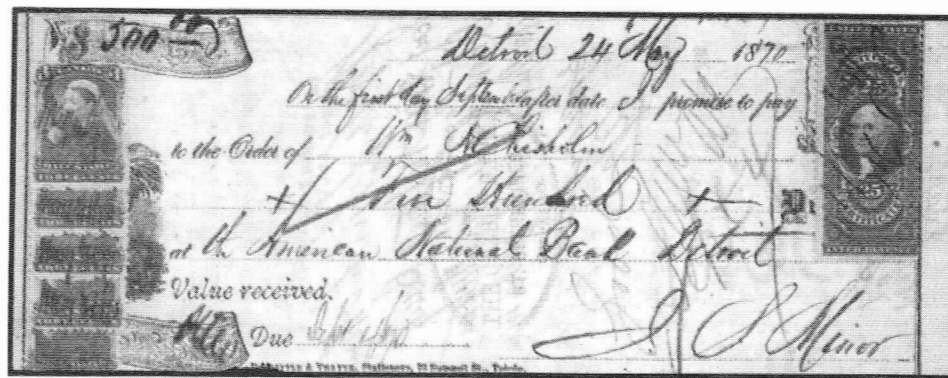 $ 500 00
Detroit 24 May 1870
On the first day September after date I promise to pay
to the Order of Wm Chisholm
Five Hundred
at the American National Bank Detroit
Value received.
Due Sept
J S Minor
25
CERTIFICATE
& THAYER, Stationers, Summit St., Toledo.